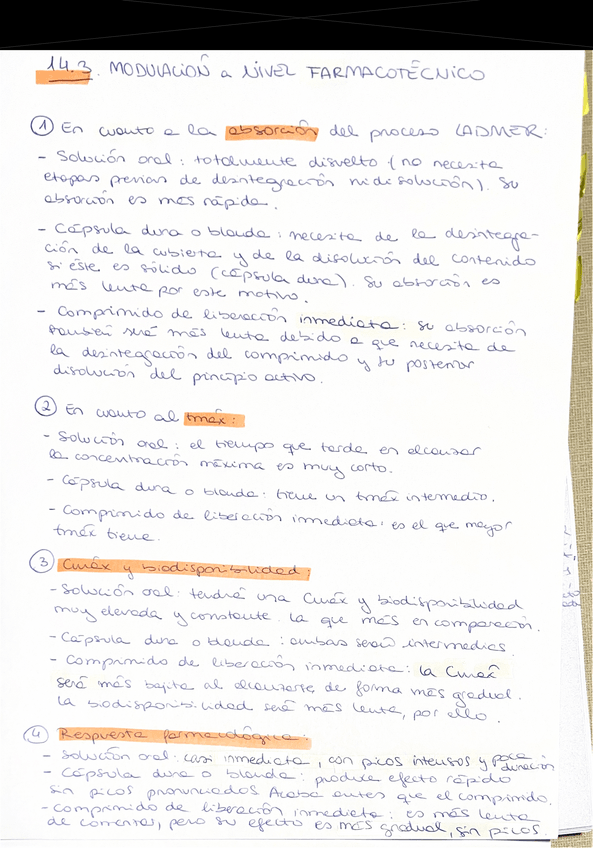 14.3. MODULACIÓN a NIVEL FARMACOTÉCNICO
① En cuanto a la absorción del proceso LADMER:
- Solución oral: totalmente disuelto (no necesita
etapas previas de desintegración ni disolución). Su
absorción es más rápida.
- Cápsula dura o blanda: necesita de la desintegra-
ción de la cubierta y de la disolución del contenido
si éste es sólido (cápsula dura). Su absorción es
más lenta por este motivo.
- Comprimido de liberación inmediata: su absorción
también será más lenta debido a que necesita de
la desintegración del comprimido y su posterior
disolución del principio activo.
② En cuanto al tmáx:
- Solución oral: el tiempo que tarda en alcanzar
la concentración máxima es muy corto.
- Cápsula dura o blanda: tiene un tmáx intermedio.
- Comprimido de liberación inmediata: es el que mayor
tmáx tiene.
③ Cmáx y biodisponibilidad:
- Solución oral: tendrá una Cmáx y biodisponibilidad
muy elevada y constante. La que más en comparación.
- Cápsula dura o blanda: ambas serán intermedias.
- Comprimido de liberación inmediata: la Cmáx
será más bajita al alcanzarse de forma más gradual.
La biodisponibilidad será más lenta, por ello.
④ Respuesta farmacológica:
- Solución oral: casi inmediata, con picos intensos y poca duración.
- Cápsula dura o blanda: produce efecto rápido
sin picos pronunciados. Acaba antes que el comprimido.
- Comprimido de liberación inmediata: es más lenta
de comenzar, pero su efecto es más gradual, sin picos.